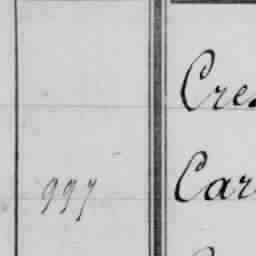 Cre
997 Car